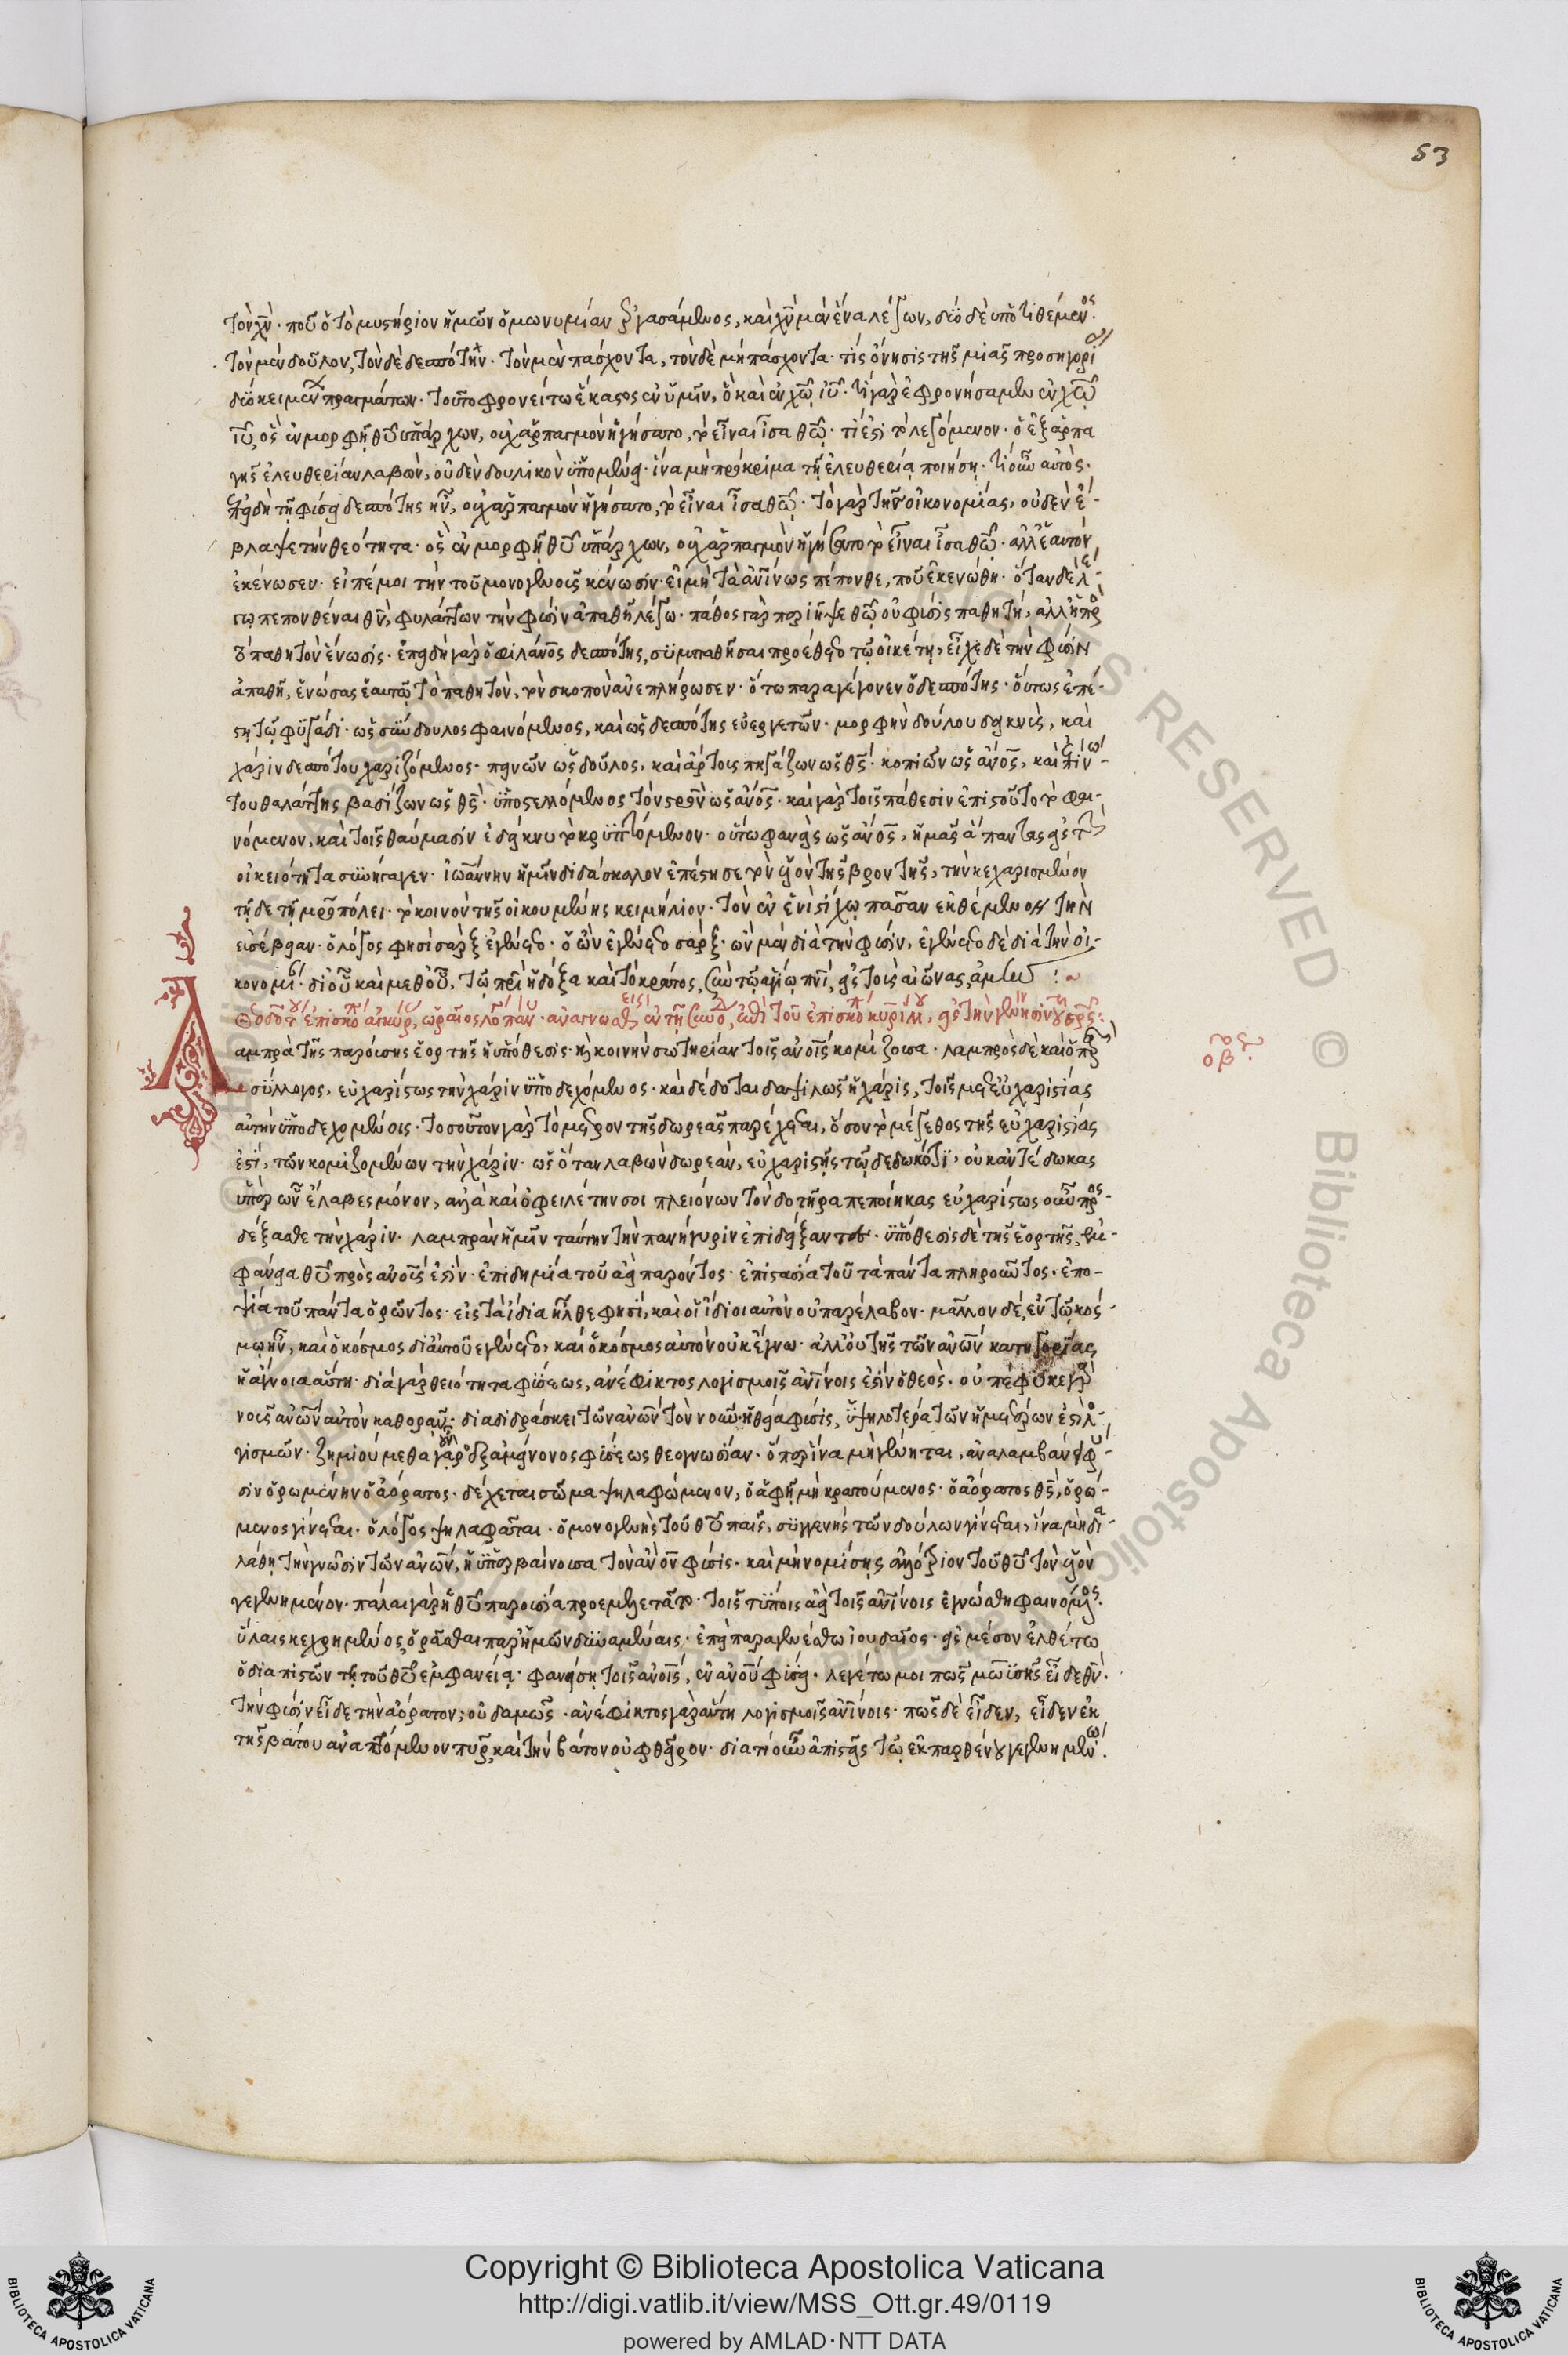 53
τὸν χν̄· ποῦ ὁ τὸ μυστήριον ἡμῶν ὁμωνυμίαν ἐργασάμενος, καὶ χν̄ μὲν ἕνα λέγων, δύο δὲ ὑποτιθέμενος.
τὸν μὲν δοῦλον, τὸν δὲ δεσπότην· τὸν μὲν πάσχοντα, τὸν δὲ μὴ πάσχοντα· τίς ὄνησις τῆς μιᾶς προσηγορί
δύο κειμένων πραγμάτων· τοῦτο φρονείτω ἕκαστος ἐν ὑμῖν, ὃ καὶ ἐν χω̄ ιῡ· τί γὰρ ἐφρονήσαμεν ἐν χω̄
ιῡ, ὃς ἐν μορφῇ θῡ ὑπάρχων, οὐχ ἁρπαγμὸν ἡγήσατο, τὸ εἶναι ἴσα θω̄· τί ἐστι τὸ λεγόμενον· ὁ ἐξ ἁρπα
γῆς ἐλευθερίαν λαβὼν, οὐδὲν δουλικὸν ὑπομένει· ἵνα μὴ πρόκριμα τῇ ἐλευθερίᾳ ποιήσῃ· τί οὖν αὐτὸς.
ἐπειδὴ τῇ φύσει δεσπότης ἦν, οὐχ ἁρπαγμὸν ἡγήσατο, τὸ εἶναι ἴσα θω̄· τὸ γὰρ τῆς οἰκονομίας, οὐδὲν ἔ-
βλαψε τὴν θεότητα· ὃς ἐν μορφῇ θῡ ὑπάρχων, οὐχ ἁρπαγμὸν ἡγήσατο τὸ εἶναι ἴσα θω̄· ἀλλ' ἑαυτὸν
ἐκένωσεν· εἰπέ μοι τὴν τοῦ μονογενοῦς κένωσιν· εἰ μὴ τὰ ἀνίνως πέπονθε, ποῦ ἐκενώθη· ὅταν δὲ λέ-
γω πεπονθέναι θν̄, φυλάττων τὴν φύσιν ἀπαθῆ λέγω· πάθος γὰρ περιῆψε θω̄ οὐ φύσις παθητή, ἀλλ' ἡ πρὸ
ου παθητὸν ἕνωσις· ἐπειδὴ γὰρ ὁ φιλάνος δεσπότης, συμπαθῆσαι προέθετο τῷ οἰκέτῃ, εἶχε δὲ τὴν φύσιν
ἀπαθῆ, ἑνώσας ἑαυτῷ τὸ παθητὸν, τὸν σκοπὸν ἀνεπλήρωσεν· οὕτω παραγέγονεν ὁ δεσπότης· οὕτως ἐπέ-
στη τῷ φυγάδι· ὡς σύνδουλος φαινόμενος, καὶ ὡς δεσπότης εὐεργετῶν· μορφὴν δούλου δεικνὺς, καὶ
χάριν δεσπότου χαριζόμενος· πεινῶν ὡς δοῦλος, καὶ ἄρτους πηγάζων ὡς θς̄· κοπιῶν ὡς ἄνος, καὶ ἐπὶ ν-
του θαλάττης βαδίζων ὡς θς̄· ὑποστελλόμενος τὸν στρὸν ὡς ἄνος· καὶ γὰρ τοῖς πάθεσιν ἐπιστοῦτο τὸ φαι-
νόμενον, καὶ τοῖς θαύμασιν ἐδείκνυ τὸ κρυπτόμενον· οὕτω φανεὶς ὡς ἄνος, ἡμᾶς ἅπαντας εἰς τὴν
οἰκειότητα συνήγαγεν· ἰωάννην ἡμῖν διδάσκαλον ἐπέστησε τὸν υἱὸν τῆς βροντῆς, τὴν κεχαρισμένον
τῇδε τῇ μρ̄οπόλει· τὸ κοινὸν τῆς οἰκουμένης κειμήλιον· τὸν ἐν ἑνὶ στίχῳ πᾶσαν ἐκθέμενον τὴν
εὐσέβειαν· ὁ λόγος φησὶ σὰρξ ἐγένετο· ὁ ὢν ἐγένετο σὰρξ· ὢν μὲν διὰ τὴν φύσιν, ἐγένετο δὲ διὰ τὴν οἰ-
κονομί· δι' οὗ καὶ μεθ' οὗ, τῷ πρὶ ἡ δόξα καὶ τὸ κράτος, σὺν τῷ ἁγίῳ πνῑ, εἰς τοὺς αἰῶνας ἀμήν:~
Θεοδότου ἐπισκόπου ἀγκύρ, ὡραῖος λόγ πάνυ· ἀναγνωσθεὶς ἐν τῇ συνόδ, ἐπὶ τοῦ ἐπισκόπ κυρίλλου, εἰς τὴν γέννησιν του σρ̄ς:
Λαμπρὰ τῆς παρούσης ἑορτῆς ἡ ὑπόθεσις· καὶ κοινὴν σωτηρίαν τοῖς ἀνοις κομίζουσα· λαμπρὸς δὲ καὶ ὁ παρ
σύλλογος, εὐχαρίστως τὴν χάριν ὑποδεχόμενος· καὶ δέδοται δαψιλῶς ἡ χάρις, τοῖς μετ' εὐχαριστίας
αὐτὴν ὑποδεχομένοις· τοσοῦτον γὰρ τὸ μέτρον τῆς δωρεᾶς παρέχεται, ὅσον τὸ μέγεθος τῆς εὐχαριστίας
ἐστί, τῶν κομιζομένων τὴν χάριν· ὡς ὅταν λαβὼν δωρεὰν, εὐχαριστῇς τῷ δεδωκότι, οὐκ ἀντέδωκας
ὑπὲρ ὧν ἔλαβες μόνον, ἀλλὰ καὶ ὀφειλέτην σοι πλειόνων τὸν δοτῆρα πεποίηκας εὐχαρίστως οὖν προς-
δέξασθε τὴν χάριν· λαμπρὰν ἡμῖν ταύτην τὴν πανήγυριν ἐπιδείξαντος· ὑπόθεσις δὲ τῆς ἑορτῆς, ἐμ-
φάνεια θῡ πρὸς ἀνους ἐστίν· ἐπιδημία τοῦ ἀεὶ παρόντος· ἐπιστασία τοῦ τὰ πάντα πληροῦντος· ἐπο-
ψία τοῦ πάντα ὁρῶντος· εἰς τὰ ἴδια ἦλθε φησὶ, καὶ οἱ ἴδιοι αὐτὸν οὐ παρέλαβον· μᾶλλον δὲ, ἐν τῷ κόσ-
μῳ ἦν, καὶ ὁ κόσμος δι' αὐτοῦ ἐγένετο, καὶ ὁ κόσμος αὐτὸν οὐκ ἔγνω· ἀλλ' οὐ τῆς τῶν ἀνων κατηγορίας
ἡ ἄγνοια αὕτη· διὰ γὰρ θειότητα φύσεως, ἀνέφικτος λογισμοῖς ἀνίνοις ἐστὶν ὁ θεός· οὐ πέφυκε γὰρ
νοῦς ἀνων αὐτὸν καθορᾶν· διαδιδράσκει τῶν ἀνων τὸν νοῦν ἡ θεία φύσις, ὑψηλοτέρα τῶν ἡμετέρων ἐστὶ λο-
γισμῶν· ζημιούμεθα γὰρ διὰ ἀμείνονος φύσεως θεογνωσίαν· ὅπερ ἵνα μὴ γένηται, ἀναλαμβάνει φύ-
σιν ὁρωμένην ὁ ἀόρατος· δέχεται σῶμα ψηλαφώμενον, ὁ ἁφῇ μὴ κρατούμενος· ὁ ἀόρατος θς̄, ὁρώ-
μενος γίνεται· ὁ λόγος ψηλαφᾶται· ὁ μονογενὴς τοῦ θῡ παῖς, συγγενὴς τῶν δούλων γίνεται, ἵνα μὴ δια-
λάθῃ τὴν γνῶσιν τῶν ἀνων, ἡ ὑπερβαίνουσα τὸν ἀνον φύσις· καὶ μὴ νομίσῃς ἀλλότριον τοῦ θῡ τὸν υἱὸν
γεγενημένον· πάλαι γὰρ ἡ θῡ παρουσία προεμελετᾶτο· τοῖς τύποις ἀεὶ τοῖς ἀνίνοις ἐγνώσθη φαινόμενος.
ὕλαις κεχρημένος, ὁρᾶσθαι παρ' ἡμῶν δυναμέναις· ἐπεὶ παραγενέσθω ἰουδαῖος· εἰς μέσον ἐλθέτω
ὁ διαπιστῶν τῇ τοῦ θῡ ἐμφανείᾳ· φανείσῃ τοῖς ἀνοις, ἐν ἀνου φύσει· λεγέτω μοι πῶς μωϋσῆς εἶδε θν̄.
τὴν φύσιν εἶδε τὴν ἀόρατον; οὐδαμῶς· ἀνέφικτος γὰρ αὕτη λογισμοῖς ἀνίνοις· πῶς δὲ εἶδεν, εἶδεν ἐκ
τῆς βάτου ἀναπτόμενον πῦρ, καὶ τὴν βάτον οὐ φθεῖρον· διατί οὖν ἀπιστεῖς τῷ ἐκ παρθένου γεγενημένω.
Copyright © Biblioteca Apostolica Vaticana
http://digi.vatlib.it/view/MSS_Ott.gr.49/0119
powered by AMLAD·NTT DATA
BIBLIOTECA APOSTOLICA VATICANA
BIBLIOTECA APOSTOLICA VATICANA